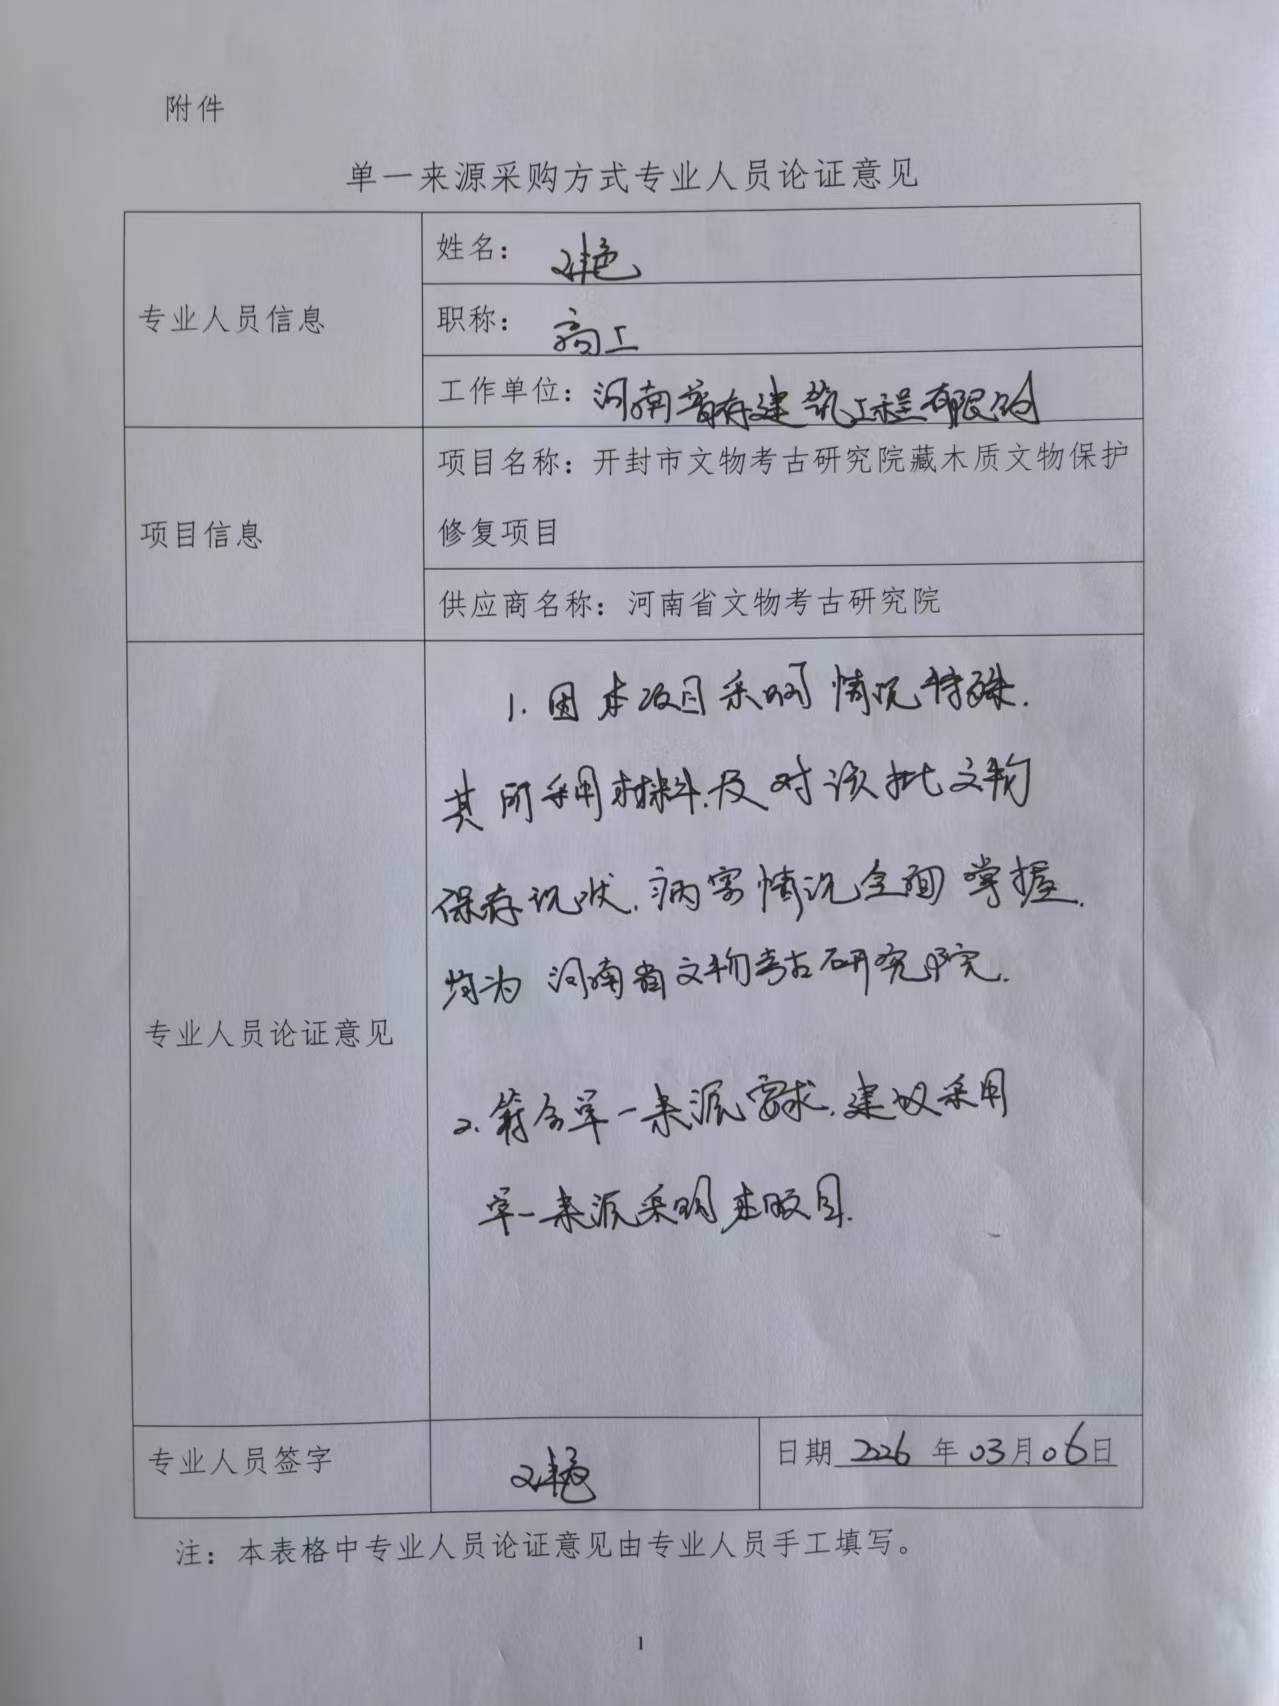 附件
单一来源采购方式专业人员论证意见
专业人员信息
姓名：艳
职称：高工
工作单位：河南省建筑工程有限公司
项目信息
项目名称：开封市文物考古研究院藏木质文物保护
修复项目
供应商名称：河南省文物考古研究院
专业人员论证意见
1.因本项目采购情况特殊.
其所采用材料.及对该批文物
保存现状.病害情况全面掌握.
均为河南省文物考古研究院.
2.符合单一来源要求.建议采用
单一来源采购本项目.
专业人员签字
艳
日期 2026 年 03月06日
注：本表格中专业人员论证意见由专业人员手工填写。
1